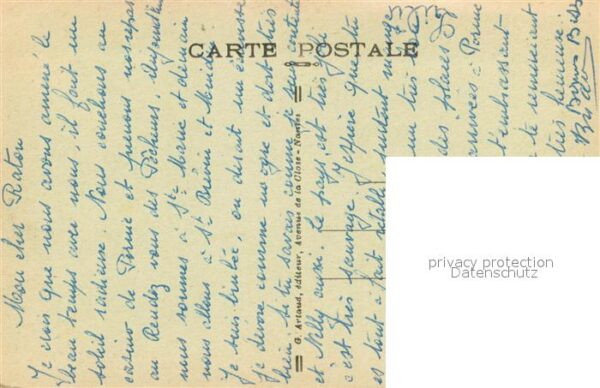 CARTE POSTALE
G. Artaud, éditeur, Avenue de la Close - Nantes
Mon cher Raton
Je crois que nous avons amené le
beau temps avec nous, il fait un
soleil radieux. Nous couchons au
casino de Pornic et prenons nos repas
au Rendez vous des Pêcheurs, aujourd'hui
nous sommes à Ste Marie et demain
nous allons à St Brévin et Mindin
Je suis bien, on dirait une
je dévore comme un ogre et dort très
bien, si tu savais comme je suis content
et Nelly aussi. Le pays est très joli
c'est très sauvage. J'espère que tu
es tout à fait rétabli, surtout mange
un très
des plages
arrivées à Pornic
t'embrassant
te remerciant
très heureux
privacy protection
Datenschutz